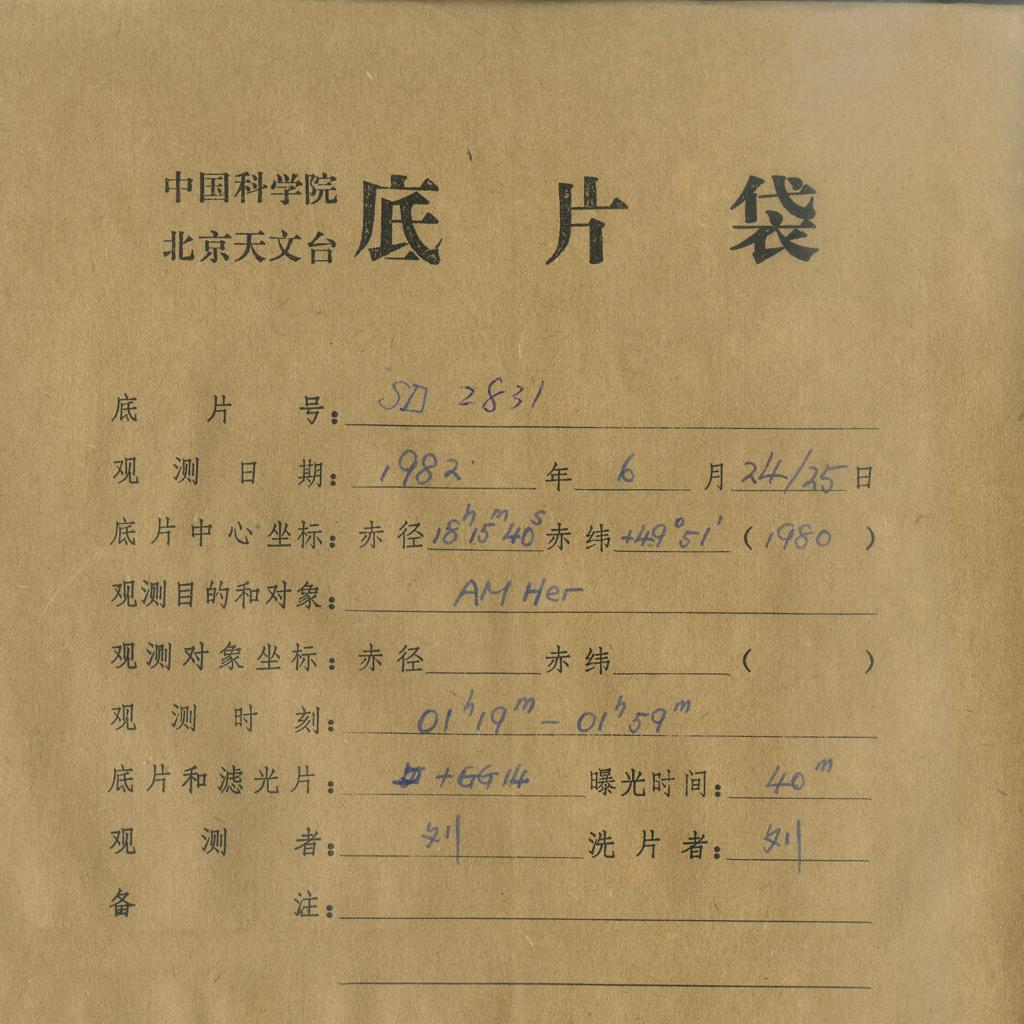 中国科学院
北京天文台
底片袋
底片号: SD 2831
观测日期: 1982 年 6 月 24/25 日
底片中心坐标: 赤径 18h15m40s 赤纬 +49°51′ (1980)
观测目的和对象: AM Her
观测对象坐标: 赤径 赤纬 ( )
观测时刻: 01h19m - 01h59m
底片和滤光片: +GG14 曝光时间: 40m
观测者: 刘 洗片者: 刘
备注: